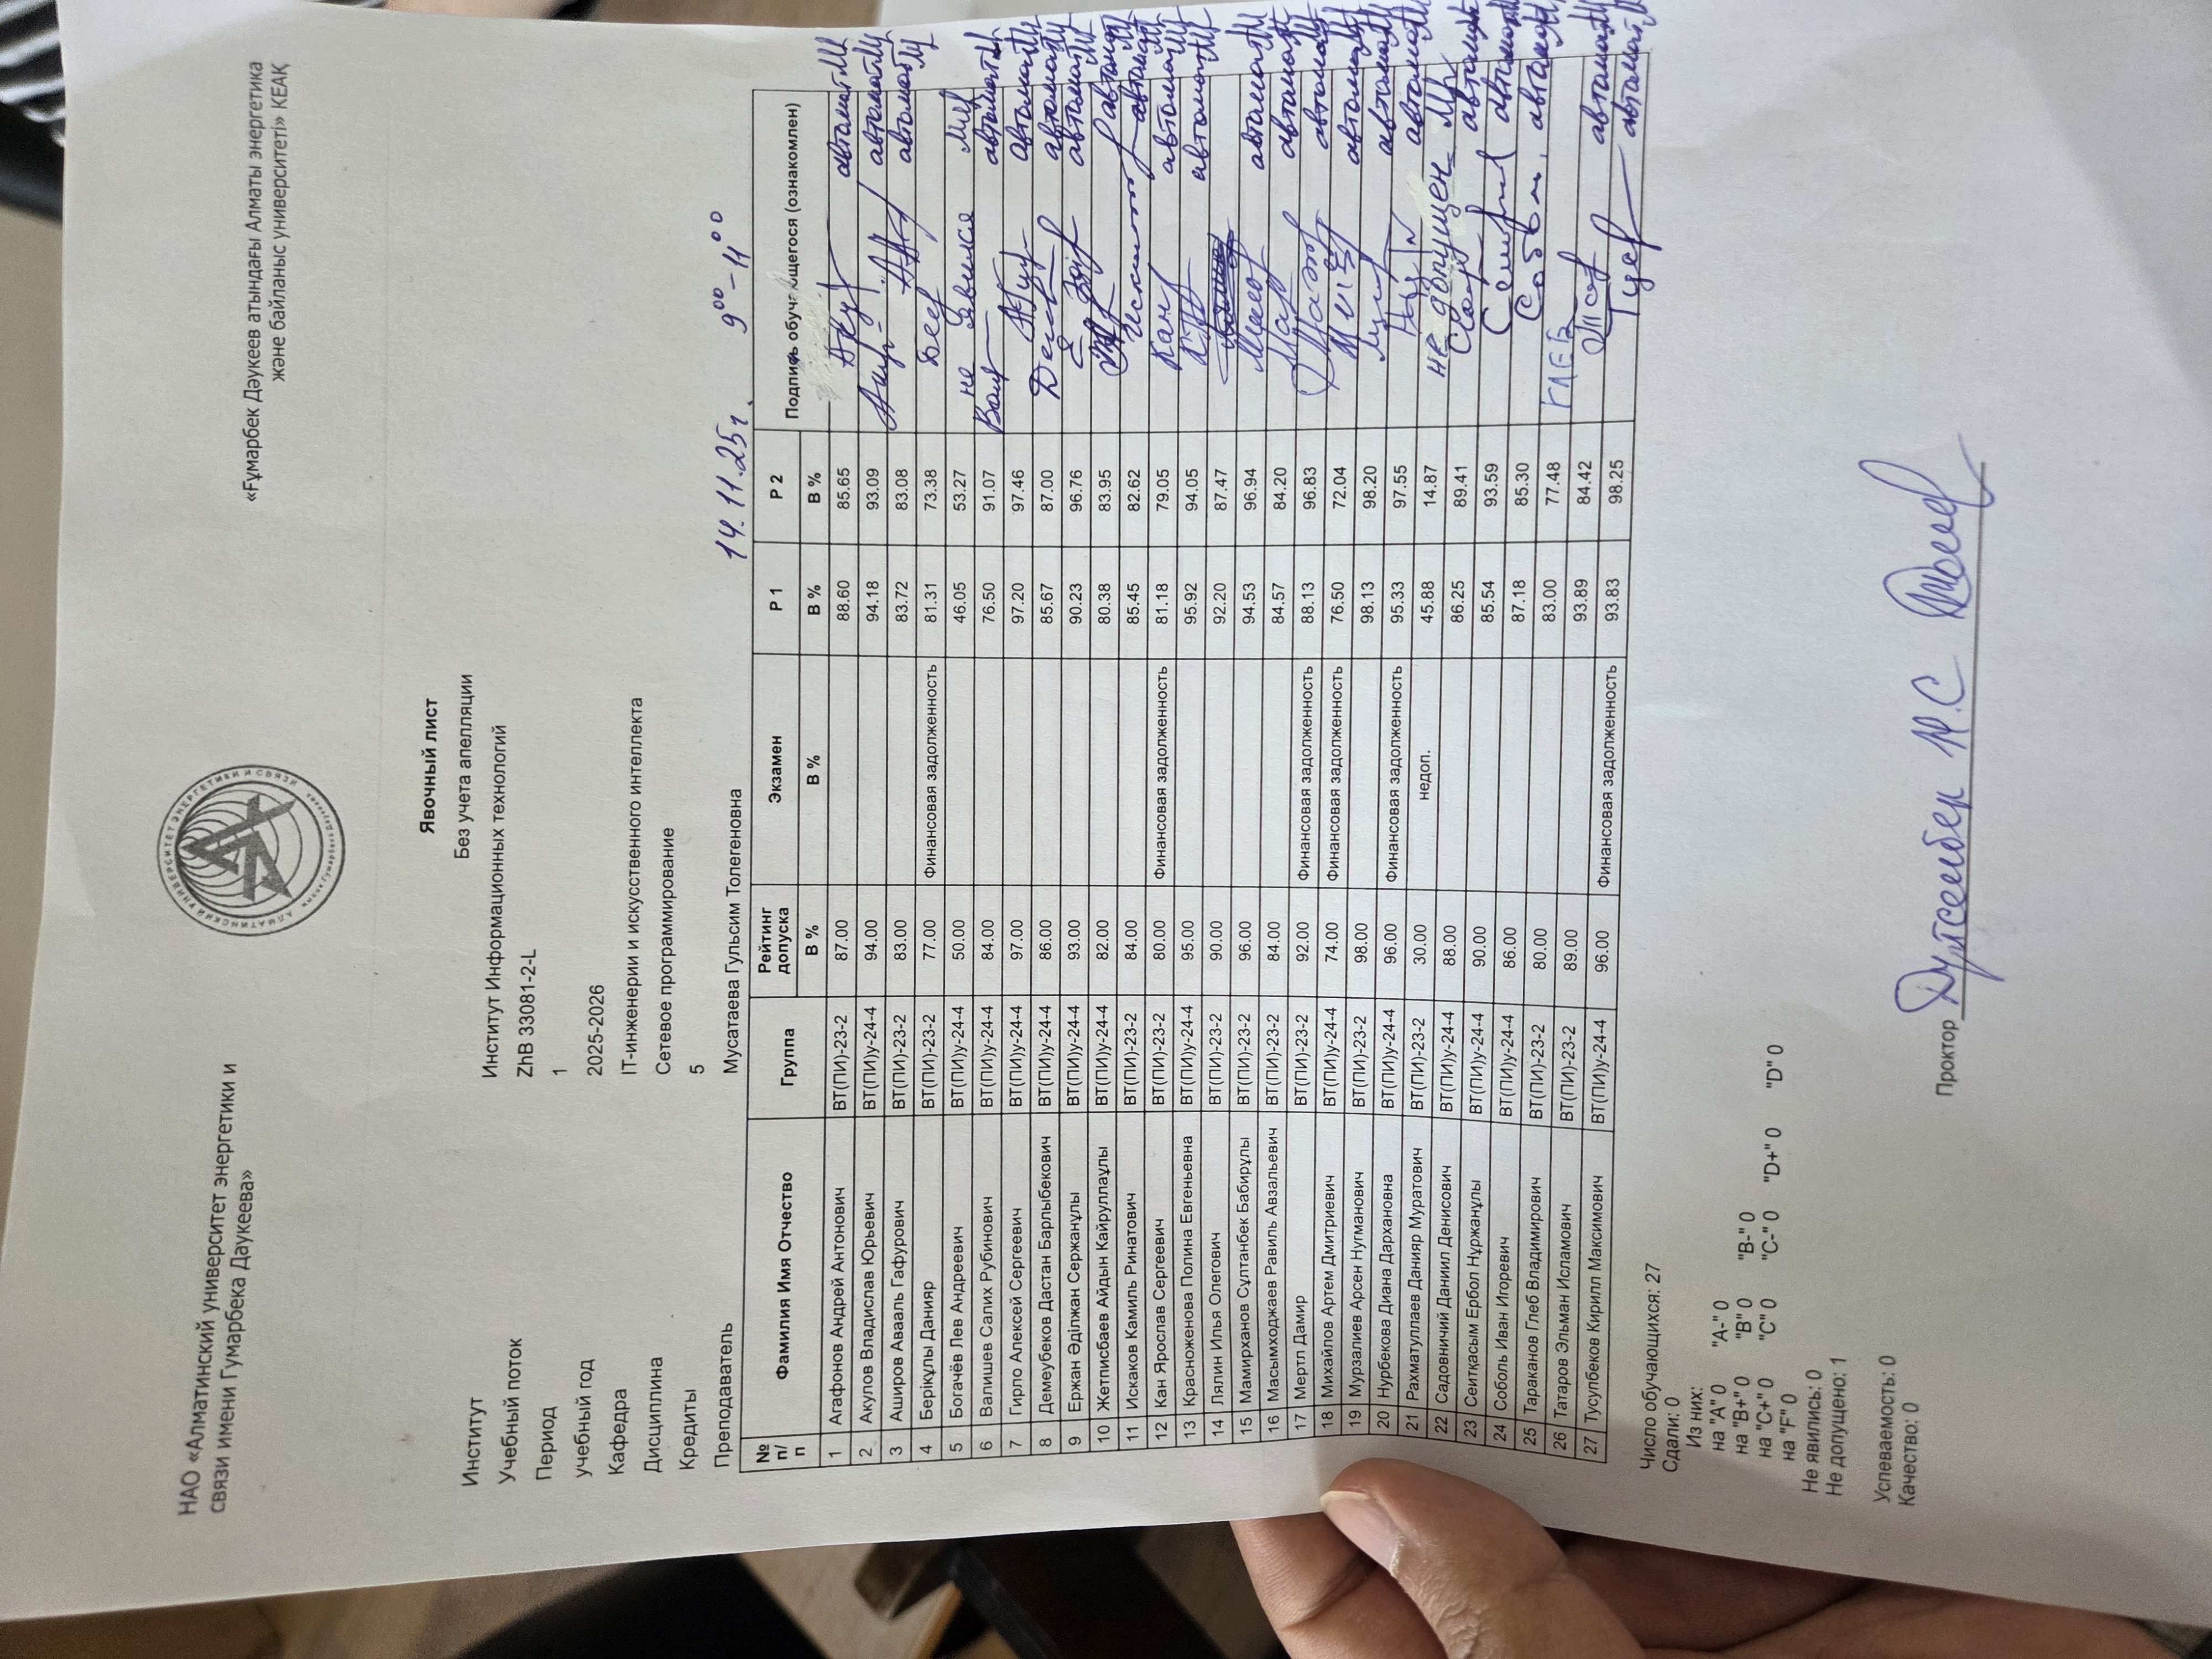 НАО «Алматинский университет энергетики и
связи имени Гумарбека Даукеева»
АЛМАТИНСКИЙ УНИВЕРСИТЕТ ЭНЕРГЕТИКИ И СВЯЗИ
«Ғұмарбек Дәукеев атындағы Алматы энергетика
және байланыс университеті» КЕАҚ
Явочный лист
Без учета апелляции
Институт Институт Информационных технологий
Учебный поток ZhB 33081-2-L
Период 1
учебный год 2025-2026
Кафедра IT-инженерии и искусственного интеллекта
Дисциплина Сетевое программирование
Кредиты 5
Преподаватель Мусатаева Гульсим Толегеновна
14.11.25г. 9⁰⁰-11⁰⁰
№ п/п Фамилия Имя Отчество Группа Рейтинг допуска Экзамен Р 1 Р 2 Подпись обучающегося (ознакомлен)
В % В % В % В %
1 Агафонов Андрей Антонович ВТ(ПИ)-23-2 87.00 88.60 85.65 автомат
2 Акулов Владислав Юрьевич ВТ(ПИ)у-24-4 94.00 94.18 93.09 автомат
3 Аширов Авааль Гафурович ВТ(ПИ)-23-2 83.00 83.72 83.08 автомат
4 Берікұлы Данияр ВТ(ПИ)-23-2 77.00 Финансовая задолженность 81.31 73.38
5 Богачёв Лев Андреевич ВТ(ПИ)у-24-4 50.00 46.05 53.27 не явился
6 Валишев Салих Рубинович ВТ(ПИ)у-24-4 84.00 76.50 91.07 автомат
7 Гирло Алексей Сергеевич ВТ(ПИ)у-24-4 97.00 97.20 97.46 автомат
8 Демеубеков Дастан Барлыбекович ВТ(ПИ)у-24-4 86.00 85.67 87.00 автомат
9 Ержан Әділжан Сержанұлы ВТ(ПИ)у-24-4 93.00 90.23 96.76 автомат
10 Жетписбаев Айдын Кайруллаулы ВТ(ПИ)у-24-4 82.00 80.38 83.95 автомат
11 Искаков Камиль Ринатович ВТ(ПИ)-23-2 84.00 85.45 82.62 автомат
12 Кан Ярослав Сергеевич ВТ(ПИ)-23-2 80.00 Финансовая задолженность 81.18 79.05 автомат
13 Красноженова Полина Евгеньевна ВТ(ПИ)у-24-4 95.00 95.92 94.05 автомат
14 Лялин Илья Олегович ВТ(ПИ)-23-2 90.00 92.20 87.47
15 Мамирханов Сұлтанбек Бабирұлы ВТ(ПИ)-23-2 96.00 94.53 96.94 автомат
16 Масымходжаев Равиль Авзальевич ВТ(ПИ)-23-2 84.00 84.57 84.20 автомат
17 Мертл Дамир ВТ(ПИ)-23-2 92.00 Финансовая задолженность 88.13 96.83 автомат
18 Михайлов Артем Дмитриевич ВТ(ПИ)у-24-4 74.00 Финансовая задолженность 76.50 72.04 автомат
19 Мурзалиев Арсен Нугманович ВТ(ПИ)-23-2 98.00 98.13 98.20 автомат
20 Нурбекова Диана Дархановна ВТ(ПИ)у-24-4 96.00 Финансовая задолженность 95.33 97.55 автомат
21 Рахматуллаев Данияр Муратович ВТ(ПИ)-23-2 30.00 недоп. 45.88 14.87 не допущен
22 Садовничий Даниил Денисович ВТ(ПИ)у-24-4 88.00 86.25 89.41 автомат
23 Сеитқасым Ербол Нұржанұлы ВТ(ПИ)у-24-4 90.00 85.54 93.59 автомат
24 Соболь Иван Игоревич ВТ(ПИ)у-24-4 86.00 87.18 85.30 автомат
25 Тараканов Глеб Владимирович ВТ(ПИ)-23-2 80.00 83.00 77.48 ГЛЕБ
26 Татаров Эльман Исламович ВТ(ПИ)-23-2 89.00 93.89 84.42 автомат
27 Тусупбеков Кирилл Максимович ВТ(ПИ)у-24-4 96.00 Финансовая задолженность 93.83 98.25 автомат
Число обучающихся: 27
Сдали: 0
Из них:
на "A" 0 "A-" 0
на "B+" 0 "B" 0 "B-" 0
на "C+" 0 "C" 0 "C-" 0 "D+" 0 "D" 0
на "F" 0
Не явились: 0
Не допущено: 1
Успеваемость: 0
Качество: 0
Проктор